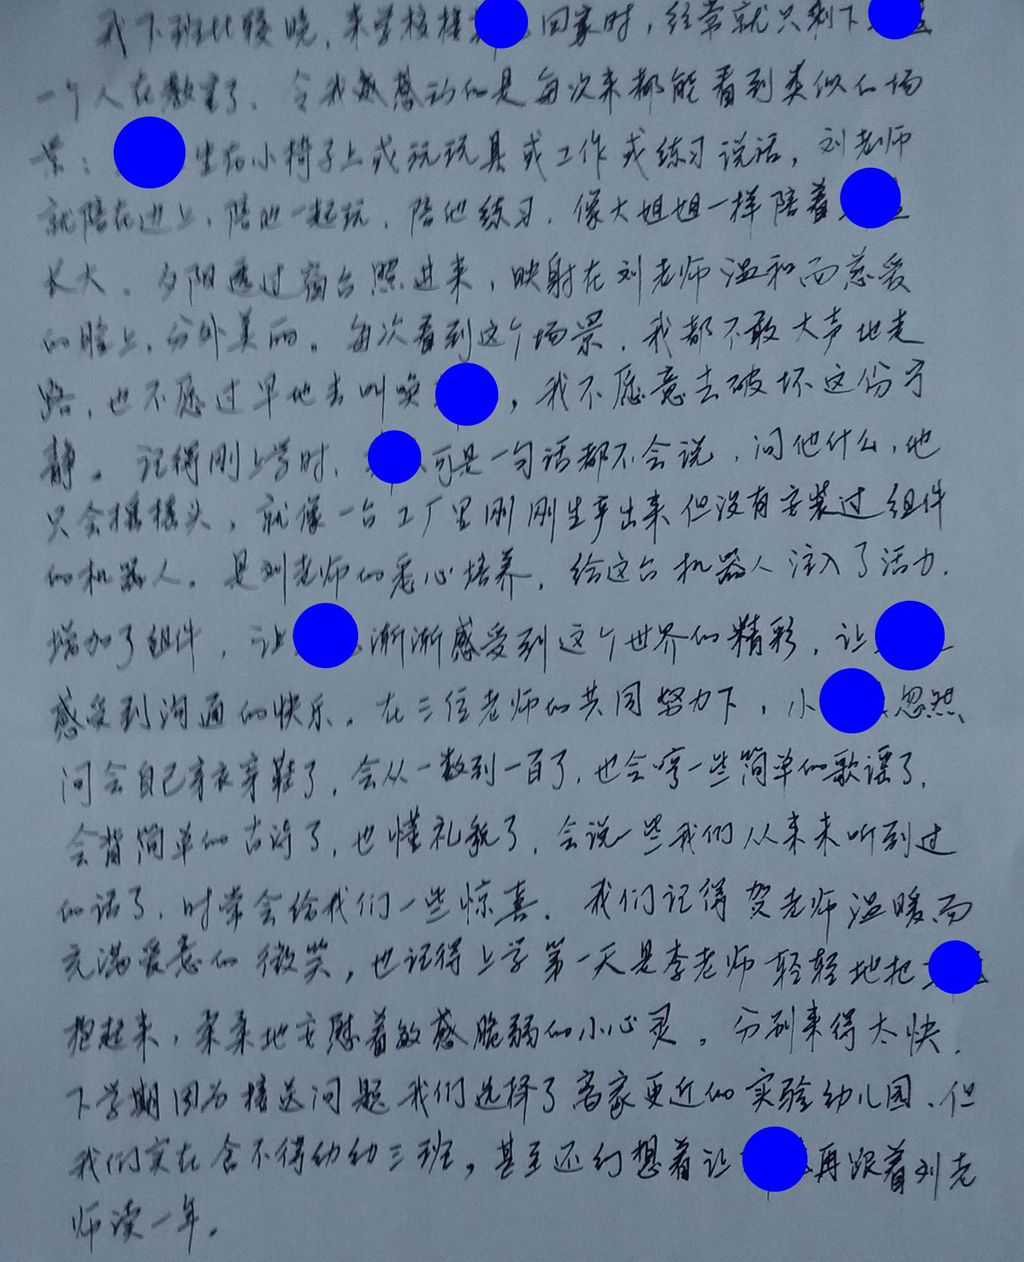 我下班比较晚，来学校接 回家时，经常就只剩下
一个人在教室了、令我最感动的是每次来都能看到类似的场
景： 坐在小椅子上或玩玩具或工作或练习说话，刘老师
就陪在边上，陪他一起玩、陪他练习，像大姐姐一样陪着
长大、夕阳透过窗台照进来，映射在刘老师温和而慈爱
的脸上，分外美丽。每次看到这个场景，我都不敢大声地走
路，也不愿过早地去叫唤 ，我不愿意去破坏这份宁
静。记得刚上学时， 可是一句话都不会说，问他什么，他
只会摇摇头，就像一台工厂里刚刚生产出来但没有安装过组件
的机器人。是刘老师的悉心培养，给这台机器人注入了活力，
增加了组件，让 渐渐感受到这个世界的精彩，让
感受到沟通的快乐。在三位老师的共同努力下，小 忽然
间会自己穿衣穿鞋了，会从一数到一百了，也会哼一些简单的歌谣了，
会背简单的古诗了，也懂礼貌了，会说一些我们从来未听到过
的话了，时常会给我们一些惊喜。我们记得贺老师温暖而
充满爱意的微笑，也记得上学第一天是李老师轻轻地把
抱起来，柔柔地安慰着敏感脆弱的小心灵。分别来得太快，
下学期因为接送问题我们选择了离家更近的实验幼儿园、但
我们实在舍不得幼幼三班，甚至还幻想着让 再跟着刘老
师读一年。